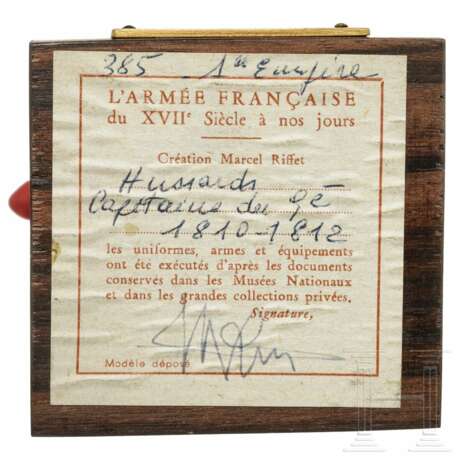 385 1er Empire
L'ARMÉE FRANÇAISE
du XVIIe Siècle à nos jours
Création Marcel Riffet
Hussards
Capitaine du 9è
1810-1812
les uniformes, armes et équipements
ont été exécutés d'après les documents
conservés dans les Musées Nationaux
et dans les grandes collections privées.
Signature,
Modèle déposé